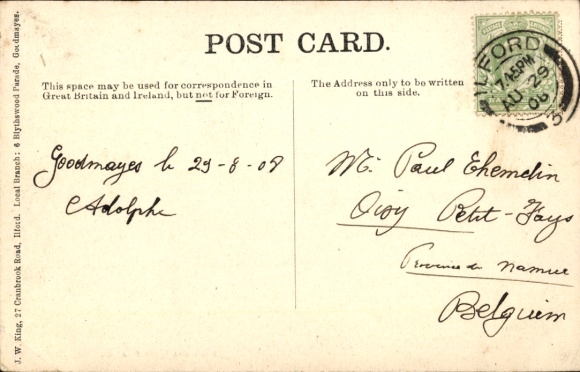 POST CARD.
This space may be used for correspondence in
Great Britain and Ireland, but not for Foreign.
The Address only to be written
on this side.
ILFORD
7.45PM
AU 29
08
Goodmayes le 29-8-08
Adolphe
Mr. Paul Ehemelin
Oisy Petit-Fays
Province de Namur
Belgium
J. W. King, 27 Cranbrook Road, Ilford. Local Branch: 6 Blythswood Parade, Goodmayes.